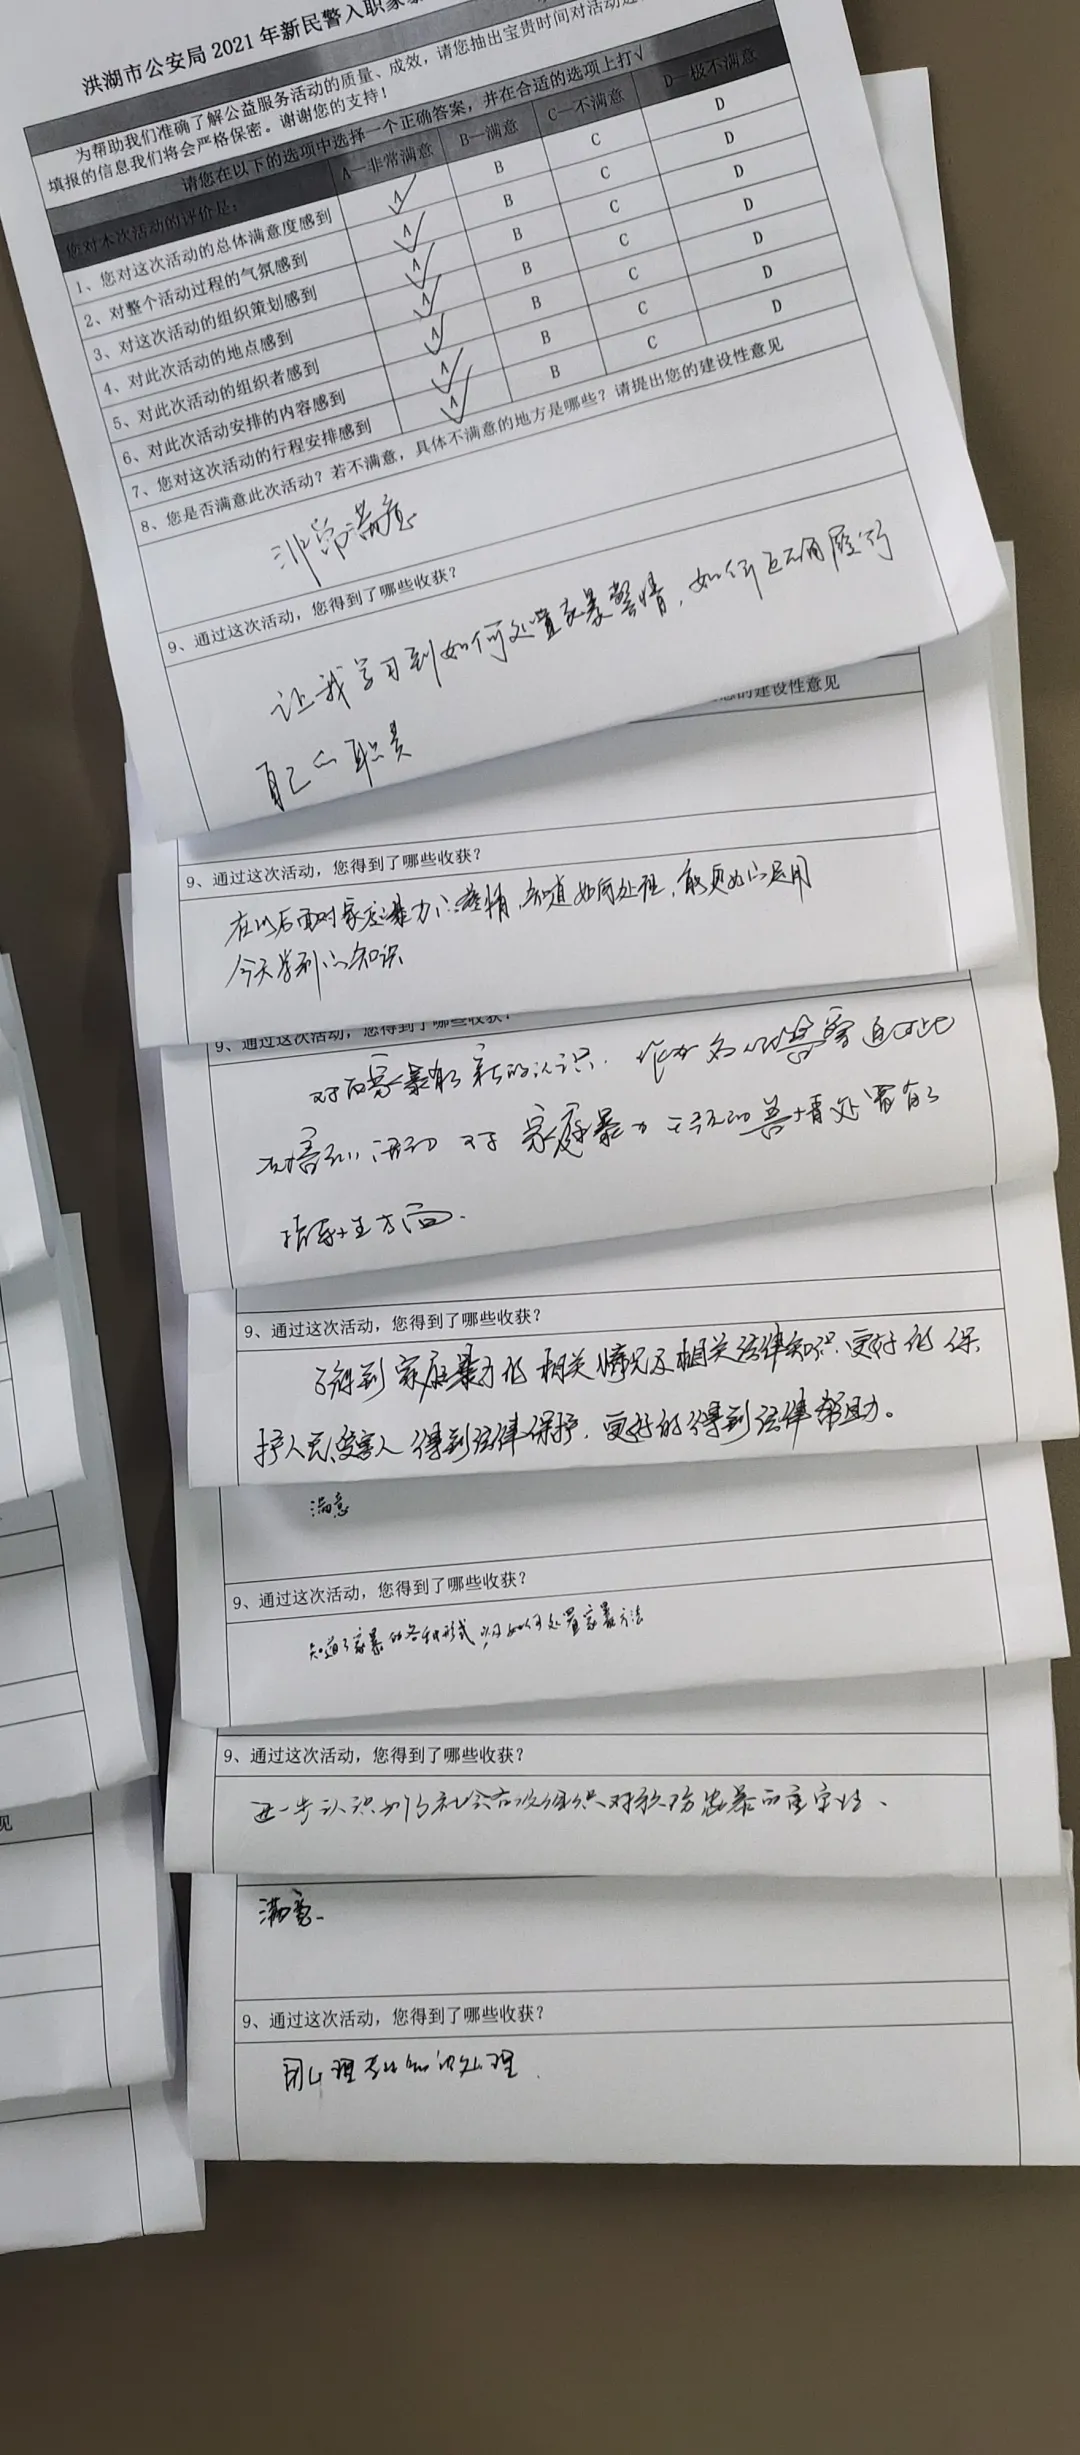 洪湖市公安局 2021 年新民警入职家暴
为帮助我们准确了解公益服务活动的质量、成效，请您抽出宝贵时间对活动进
填报的信息我们将会严格保密。谢谢您的支持！
请您在以下的选项中选择一个正确答案，并在合适的选项上打√
您对本次活动的评价是： A—非常满意 B—满意 C—不满意 D—极不满意
1、您对这次活动的总体满意度感到 A√ B C D
2、对整个活动过程的气氛感到 A√ B C D
3、对这次活动的组织策划感到 A√ B C D
4、对此次活动的地点感到 A√ B C D
5、对此次活动的组织者感到 A√ B C D
6、对此次活动安排的内容感到 A√ B C D
7、您对这次活动的行程安排感到 A√ B C D
8、您是否满意此次活动？若不满意，具体不满意的地方是哪些？请提出您的建设性意见
非常满意
9、通过这次活动，您得到了哪些收获？
让我学习到如何处置家暴警情，如何正确履行
自己的职责
的建设性意见
9、通过这次活动，您得到了哪些收获？
在以后面对家庭暴力的警情，知道如何处理，能更好的运用
今天学到的知识
9、通过这次活动，您得到了哪些收获？
对家暴有了新的认识，作为名
培训活动对于家庭暴力警情处置有了
指导性方向.
9、通过这次活动，您得到了哪些收获？
了解到家庭暴力的相关情况及相关法律知识，更好的保
护人民受害人得到法律保护，更好的得到法律帮助。
满意
9、通过这次活动，您得到了哪些收获？
知道了家暴的各种形式以及如何处置家暴方法
9、通过这次活动，您得到了哪些收获？
进一步认识到了社会 组织对预防家暴的重要性、
满意.
9、通过这次活动，您得到了哪些收获？
用心理 知识处理.
见